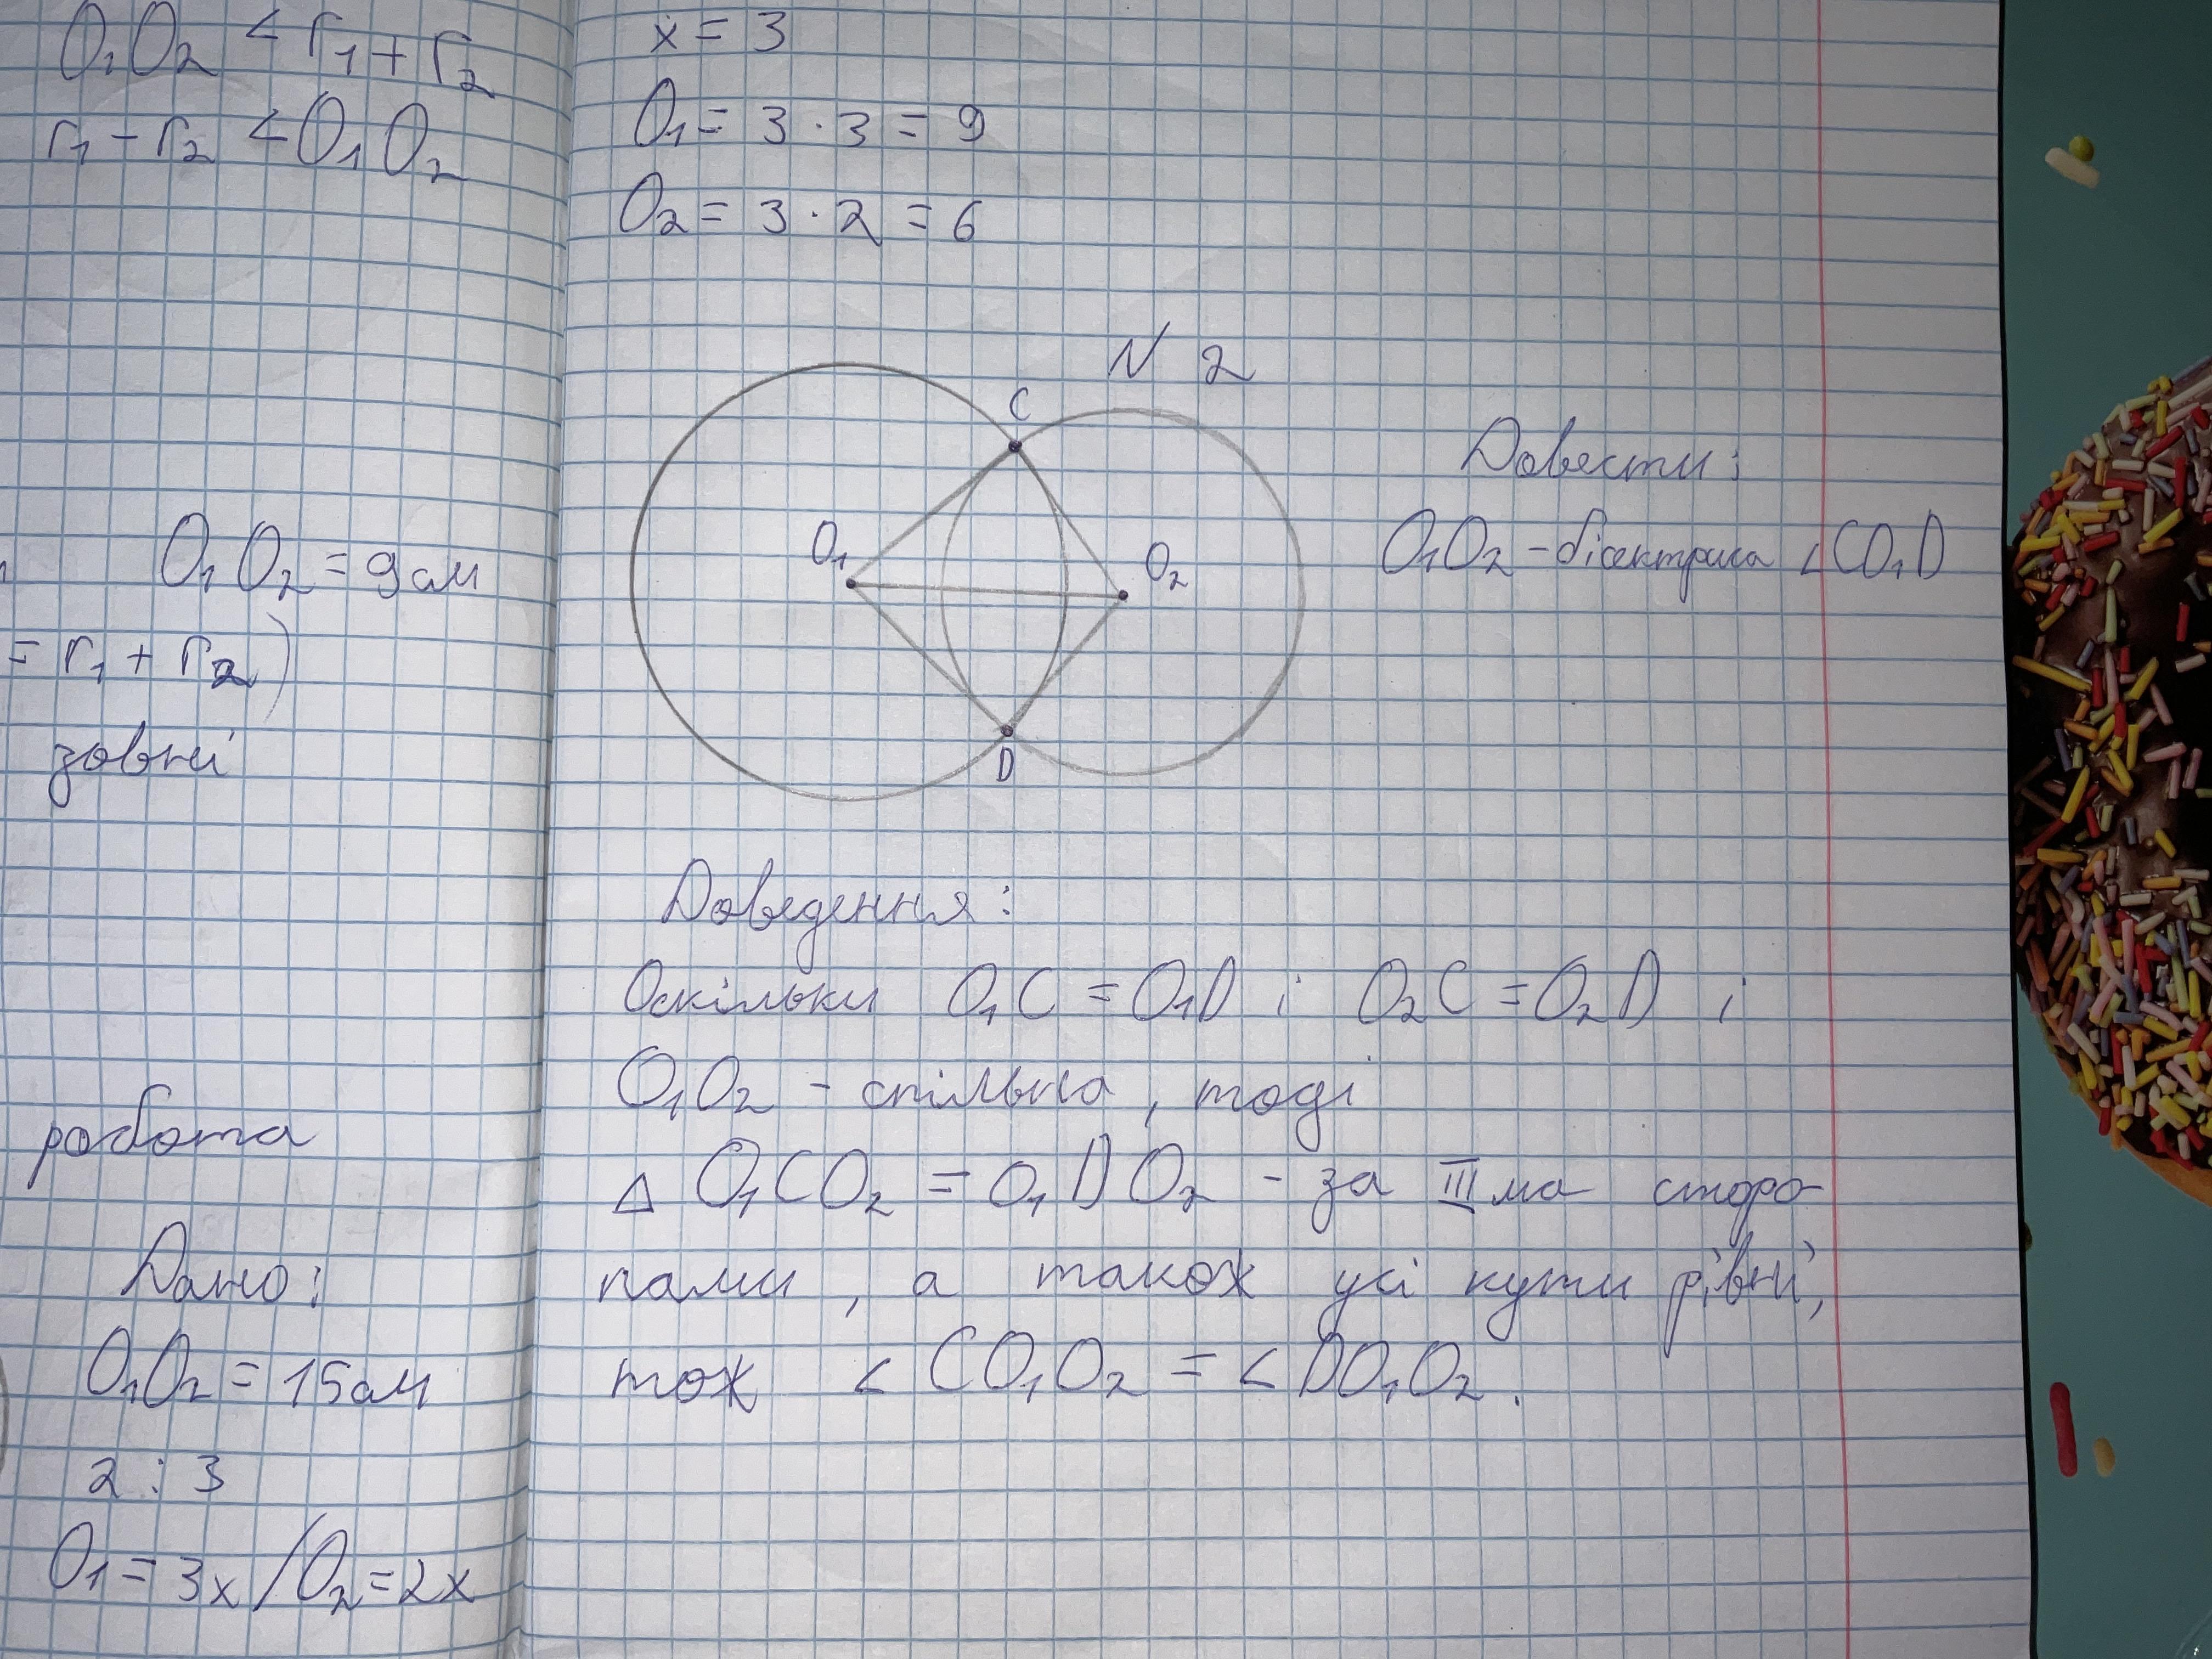 O₁O₂ < r₁ + r₂
r₁ - r₂ < O₁O₂
O₁O₂ = 9см
= r₁ + r₂)
зовні
робота
Дано:
O₁O₂ = 15см
2 : 3
O₁ = 3x / O₂ = 2x
x = 3
O₁ = 3 · 3 = 9
O₂ = 3 · 2 = 6
N 2
C
O₁
O₂
D
Довести:
O₁O₂ - бісектриса <CO₁D
Доведення:
Оскільки O₁C = O₁D і O₂C = O₂D і
O₁O₂ - спільна, тоді
△ O₁CO₂ = O₁DO₂ - за III ма сторо
нами, а також усі кути рівні,
тож < CO₁O₂ = < DO₁O₂.